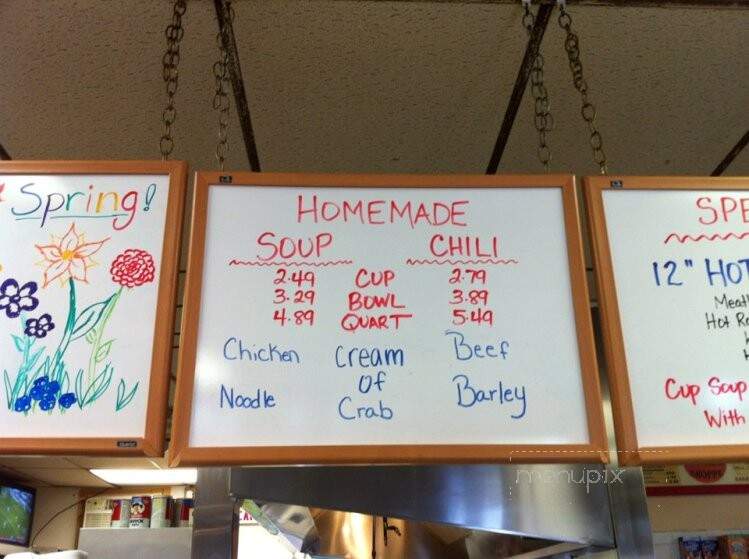 Spring!
HOMEMADE
SOUP CHILI
2.49 CUP 2.79
3.29 BOWL 3.89
4.89 QUART 5.49
Chicken Noodle
Cream of Crab
Beef Barley
SPE
12" HOT
Meat
Hot Ro
Cup Soup
With
menupix